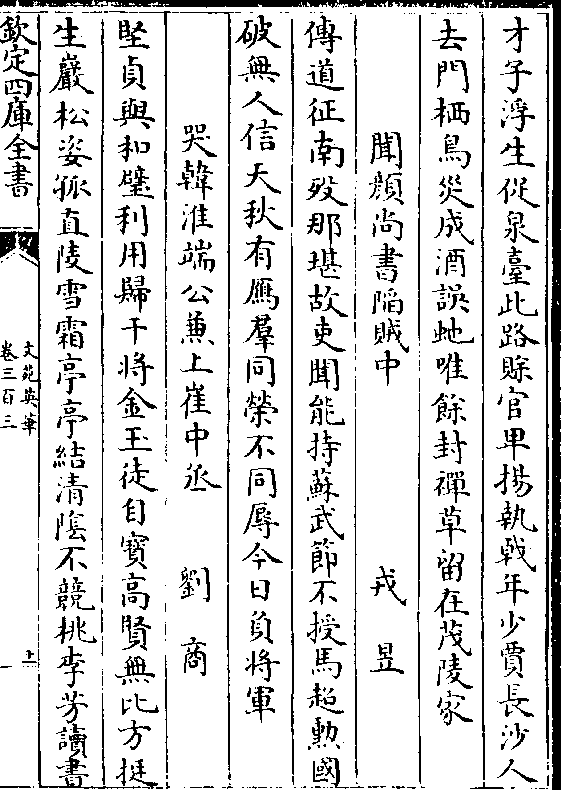 才子浮生促泉臺此路賒官卑揚執戟年少賈長沙人
去門栖鳥災成酒誤虵唯餘封禪草留在茂陵家
聞顔尚書陷賊中 戎昱
傳道征南歿那堪故吏聞能持蘇武節不授馬超勲國
破無人信天秋有鴈羣同榮不同辱今日負將軍
哭韓淮端公兼上崔中丞 劉商
堅貞與和璧利用歸干將金玉徒自寳高賢無比方挺
生巖松姿孤直陵雪霜亭亭結清隂不競桃李芳讀書
欽定四庫全書
文苑英華
卷三百三
十一